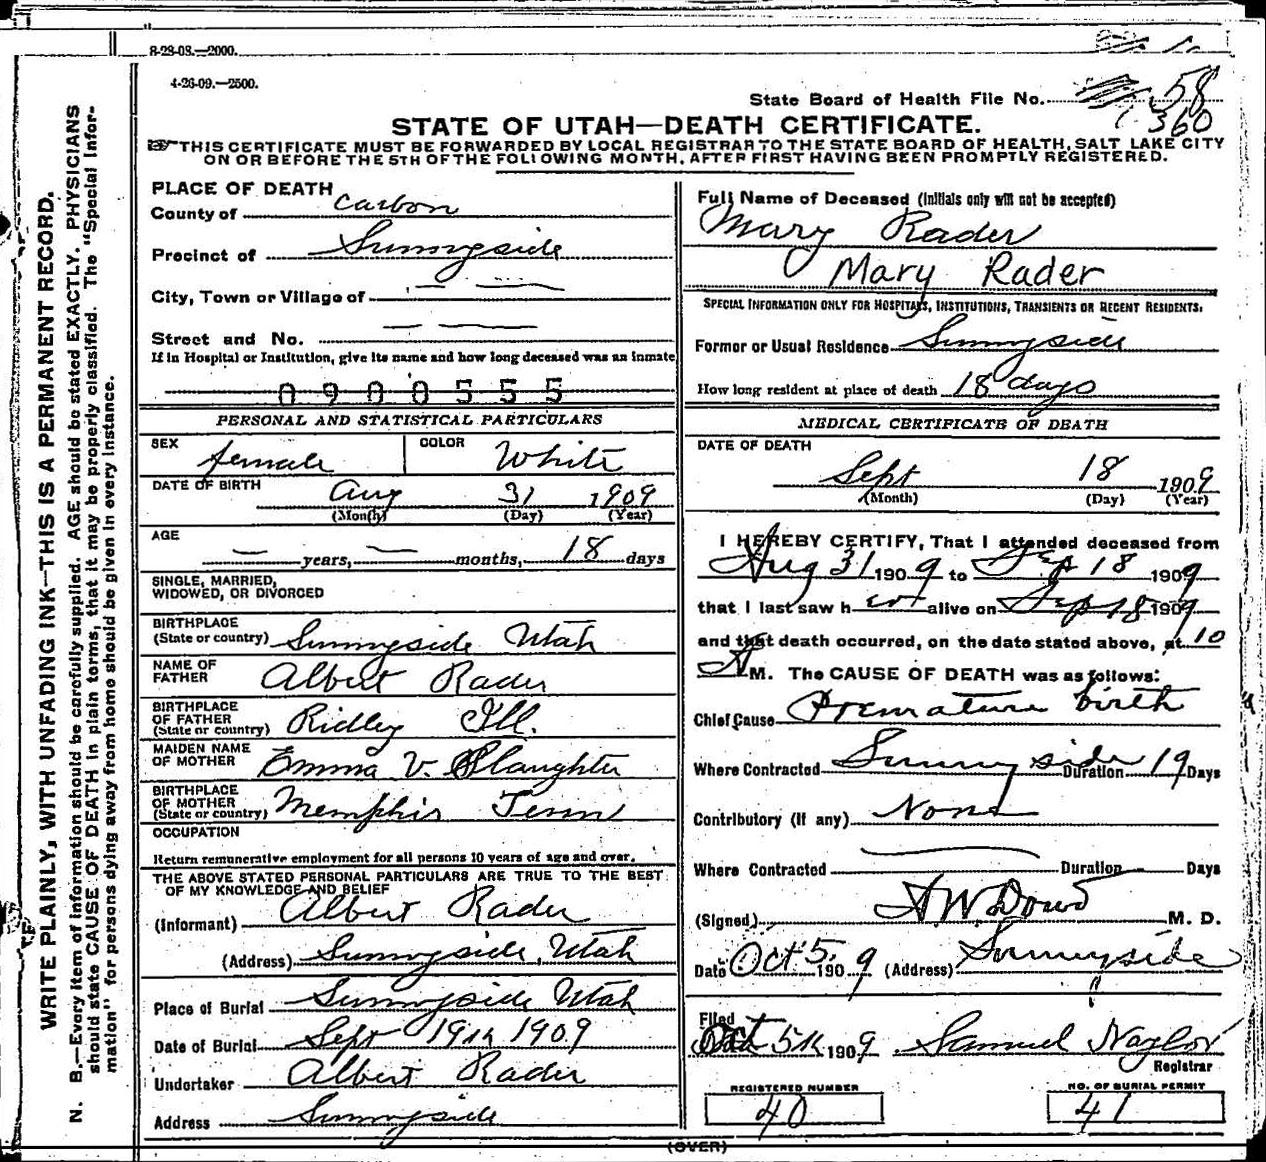 8-28-08.—2000.
4-26-09.—2500.
State Board of Health File No. 58
360
STATE OF UTAH—DEATH CERTIFICATE.
THIS CERTIFICATE MUST BE FORWARDED BY LOCAL REGISTRAR TO THE STATE BOARD OF HEALTH, SALT LAKE CITY
ON OR BEFORE THE 5TH OF THE FOLLOWING MONTH, AFTER FIRST HAVING BEEN PROMPTLY REGISTERED.
WRITE PLAINLY, WITH UNFADING INK—THIS IS A PERMANENT RECORD.
N. B.—Every item of information should be carefully supplied. AGE should be stated EXACTLY. PHYSICIANS
should state CAUSE OF DEATH in plain terms, that it may be properly classified. The "Special Infor-
mation" for persons dying away from home should be given in every instance.
PLACE OF DEATH
County of Carbon
Precinct of Sunnyside
City, Town or Village of — —
Street and No. — —
If in Hospital or Institution, give its name and how long deceased was an inmate
0900555
PERSONAL AND STATISTICAL PARTICULARS
SEX female COLOR White
DATE OF BIRTH Aug 31 1909
(Month) (Day) (Year)
AGE — years, — months, 18 days
SINGLE, MARRIED,
WIDOWED, OR DIVORCED
BIRTHPLACE
(State or country) Sunnyside Utah
NAME OF
FATHER Albert Rader
BIRTHPLACE
OF FATHER
(State or country) Ridley Ill.
MAIDEN NAME
OF MOTHER Emma V. Slaughter
BIRTHPLACE
OF MOTHER
(State or country) Memphis Tenn
OCCUPATION
Return remunerative employment for all persons 10 years of age and over.
THE ABOVE STATED PERSONAL PARTICULARS ARE TRUE TO THE BEST
OF MY KNOWLEDGE AND BELIEF
(Informant) Albert Rader
(Address) Sunnyside, Utah
Place of Burial Sunnyside Utah
Date of Burial Sept 19th 1909
Undertaker Albert Rader
Address Sunnyside
Full Name of Deceased (Initials only will not be accepted)
Mary Rader
Mary Rader
SPECIAL INFORMATION ONLY FOR HOSPITALS, INSTITUTIONS, TRANSIENTS OR RECENT RESIDENTS.
Former or Usual Residence Sunnyside
How long resident at place of death 18 days
MEDICAL CERTIFICATE OF DEATH
DATE OF DEATH
Sept 18 1909
(Month) (Day) (Year)
I HEREBY CERTIFY, That I attended deceased from
Aug 31 1909 to Sep 18 1909
that I last saw h er alive on Sep 18 1909
and that death occurred, on the date stated above, at 10
A M. The CAUSE OF DEATH was as follows:
Chief Cause Premature birth
Where Contracted Sunnyside Duration 19 Days
Contributory (if any) None
Where Contracted Duration Days
(Signed) A W Dowd M. D.
Date Oct 5. 1909 (Address) Sunnyside
Filed
Oct 5th 1909 Samuel Naylor
Registrar
REGISTERED NUMBER
40
NO. OF BURIAL PERMIT
41
(OVER)